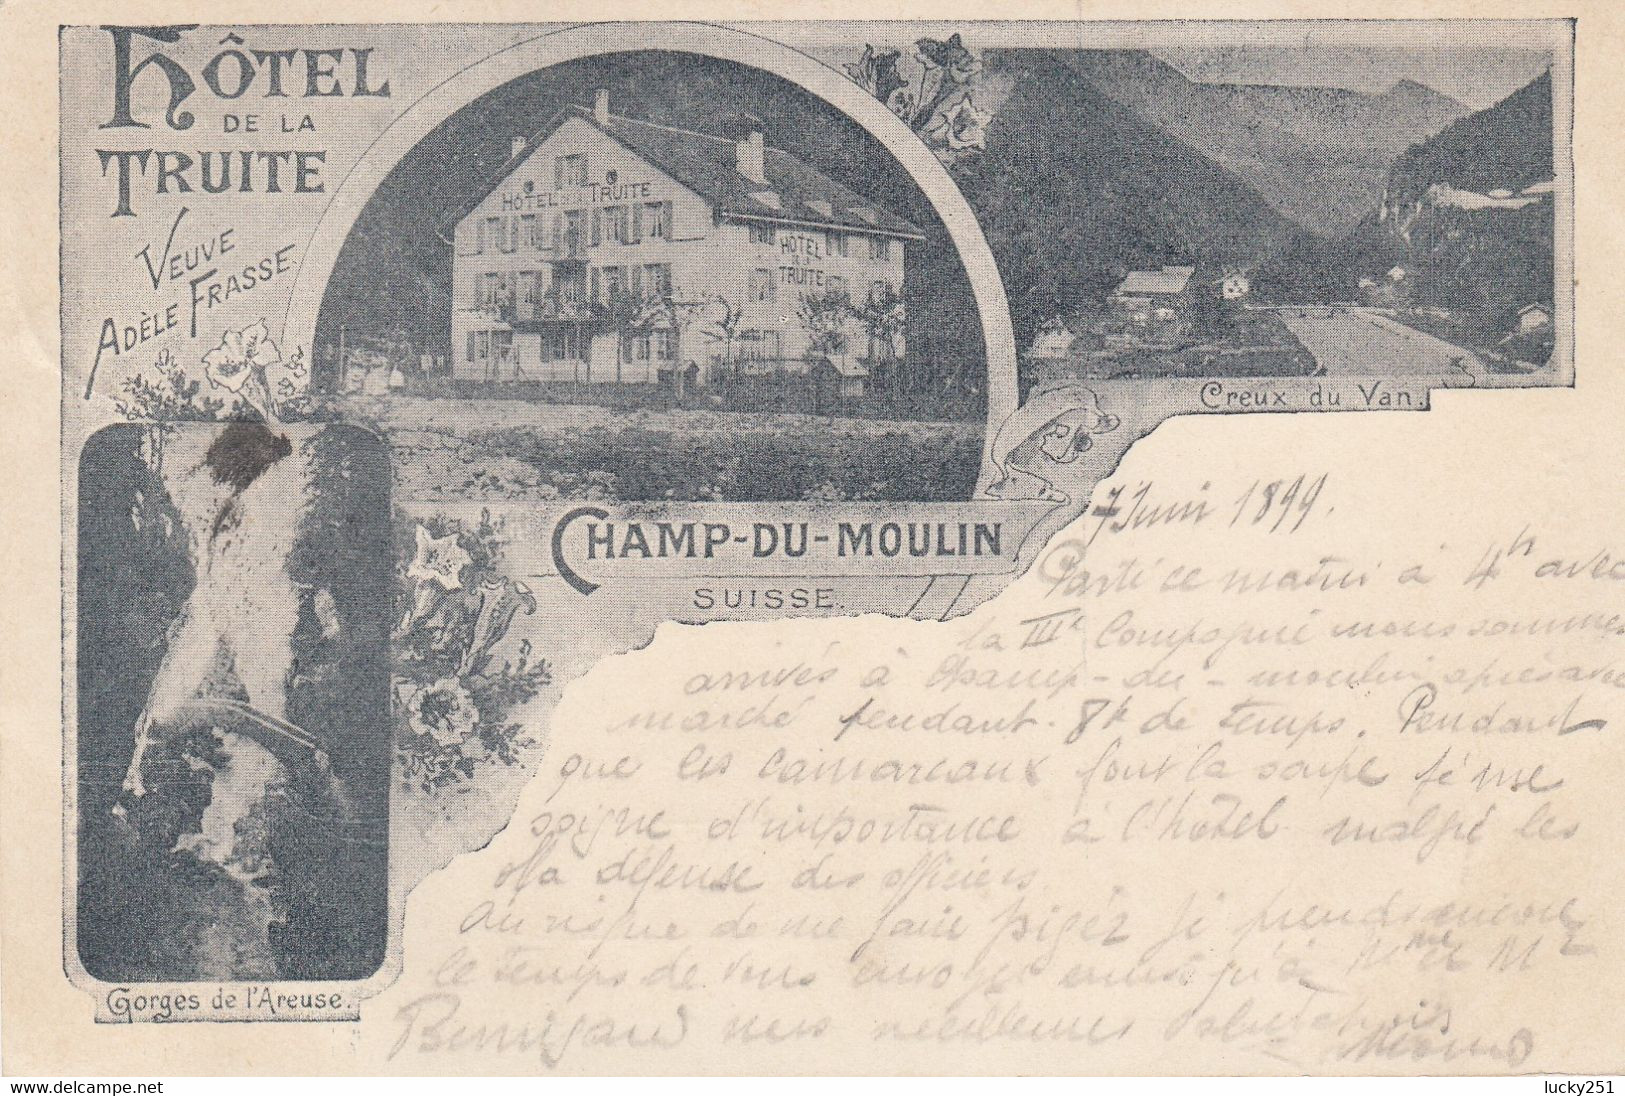 HÔTEL
DE LA
TRUITE
VEUVE
ADÈLE FRASSE.
HÔTEL DE LA TRUITE
HÔTEL
DE LA
TRUITE
Creux du Van.
CHAMP-DU-MOULIN
SUISSE.
Gorges de l'Areuse.
7 Juin 1899.
Parti ce matin à 4h avec
la IIIe Compagnie nous sommes
arrivés à Champ-du-moulin après avoir
marché pendant 8h de temps. Pendant
que les camarades font la soupe je me
soigne d'importance à l'hôtel malgré les
la défense des officiers
Au risque de me faire piger je prends encore
le temps de vous envoyer ainsi qu'à Mme et M
nos meilleures salutations
lucky251